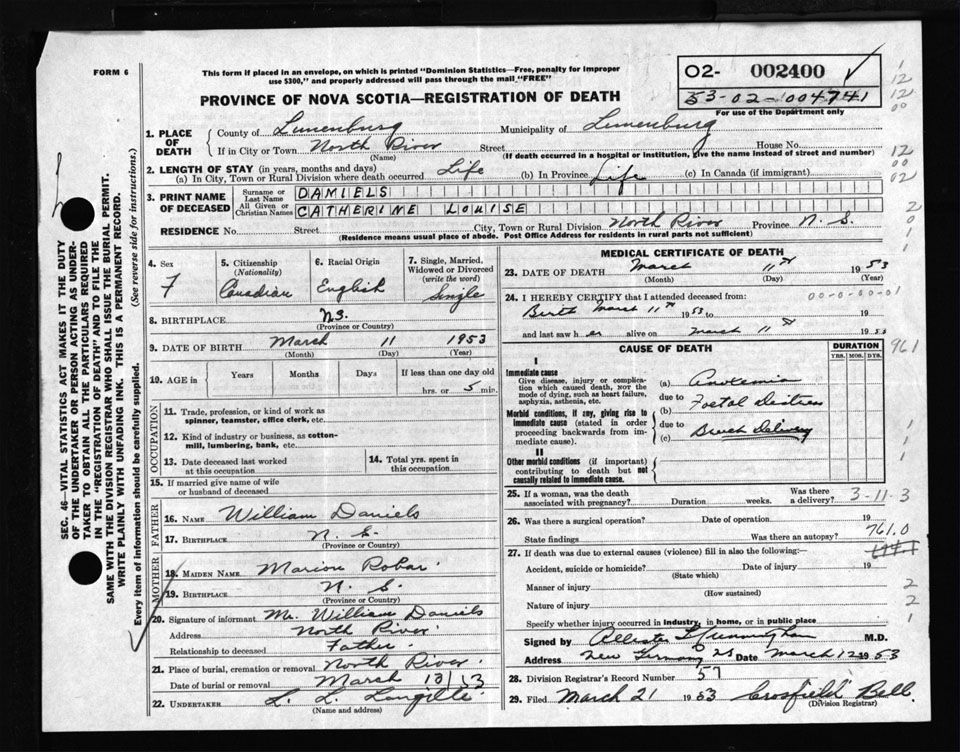 FORM 6
This form if placed in an envelope, on which is printed "Dominion Statistics—Free, penalty for improper
use $300," and properly addressed will pass through the mail "FREE"
PROVINCE OF NOVA SCOTIA—REGISTRATION OF DEATH
O2- 002400
53-02-004741
For use of the Department only
1. PLACE OF DEATH
County of Lunenburg Municipality of Lunenburg
If in City or Town North River Street House No.
(Name) (If death occurred in a hospital or institution, give the name instead of street and number)
2. LENGTH OF STAY (in years, months and days)
(a) In City, Town or Rural Division where death occurred Life (b) In Province Life (c) In Canada (if immigrant)
3. PRINT NAME OF DECEASED
Surname or Last Name DANIELS
All Given or Christian Names CATHERINE LOUISE
RESIDENCE No. Street City, Town or Rural Division North River Province N. S.
(Residence means usual place of abode. Post Office Address for residents in rural parts not sufficient)
4. Sex F
5. Citizenship (Nationality) Canadian
6. Racial Origin English
7. Single, Married, Widowed or Divorced (write the word) Single
8. BIRTHPLACE N.S.
(Province or Country)
9. DATE OF BIRTH March 11 1953
(Month) (Day) (Year)
10. AGE in Years Months Days If less than one day old
hrs. or 5 min.
OCCUPATION
11. Trade, profession, or kind of work as
spinner, teamster, office clerk, etc.
12. Kind of industry or business, as cotton-
mill, lumbering, bank, etc.
13. Date deceased last worked
at this occupation
14. Total yrs. spent in
this occupation
15. If married give name of wife
or husband of deceased
FATHER
16. NAME William Daniels
17. BIRTHPLACE N. S.
(Province or Country)
MOTHER
18. MAIDEN NAME Marion Robar
19. BIRTHPLACE N. S.
(Province or Country)
20. Signature of informant Mr. William Daniels
Address North River
Relationship to deceased Father
21. Place of burial, cremation or removal North River
Date of burial or removal March
22. UNDERTAKER L. L. Langille
(Name and address)
MEDICAL CERTIFICATE OF DEATH
23. DATE OF DEATH March 11th 1953
(Month) (Day) (Year)
24. I HEREBY CERTIFY that I attended deceased from: 00-0-00-01
Birth March 11th 1953 to 19
and last saw her alive on March 11th 1953
CAUSE OF DEATH
DURATION
YRS. MOS. DYS.
961
I
Immediate cause
Give disease, injury or complica-
tion which caused death, NOT the
mode of dying, such as heart failure,
asphyxia, asthenia, etc.
(a) Anoxemia
due to
Morbid conditions, if any, giving rise to
immediate cause (stated in order
proceeding backwards from im-
mediate cause).
(b) Foetal Distress
due to
(c) Breech Delivery
II
Other morbid conditions (if important)
contributing to death but not
causally related to immediate cause.
25. If a woman, was the death
associated with pregnancy? Duration weeks. Was there
a delivery? 3-11-3
26. Was there a surgical operation? Date of operation 19
State findings Was there an autopsy?
761.0
27. If death was due to external causes (violence) fill in also the following:—
Accident, suicide or homicide? Date of injury 19
(State which)
Manner of injury
(How sustained)
Nature of injury
Specify whether injury occurred in industry, in home, or in public place
Signed by Cunningham M.D.
Address New Germany NS Date March 12 1953
28. Division Registrar's Record Number 57
29. Filed March 21 1953 Crosfield Bell
(Division Registrar)
SEC. 46—VITAL STATISTICS ACT MAKES IT THE DUTY
OF THE UNDERTAKER OR PERSON ACTING AS UNDER-
TAKER TO OBTAIN ALL THE PARTICULARS REQUIRED
IN THE "REGISTRATION OF DEATH" AND TO FILE THE
SAME WITH THE DIVISION REGISTRAR WHO SHALL ISSUE THE BURIAL PERMIT.
WRITE PLAINLY WITH UNFADING INK. THIS IS A PERMANENT RECORD.
Every item of information should be carefully supplied. (See reverse side for instructions.)
1
12
12
00
12
00
02
2
0
1
1
1
1
1
2
2
1